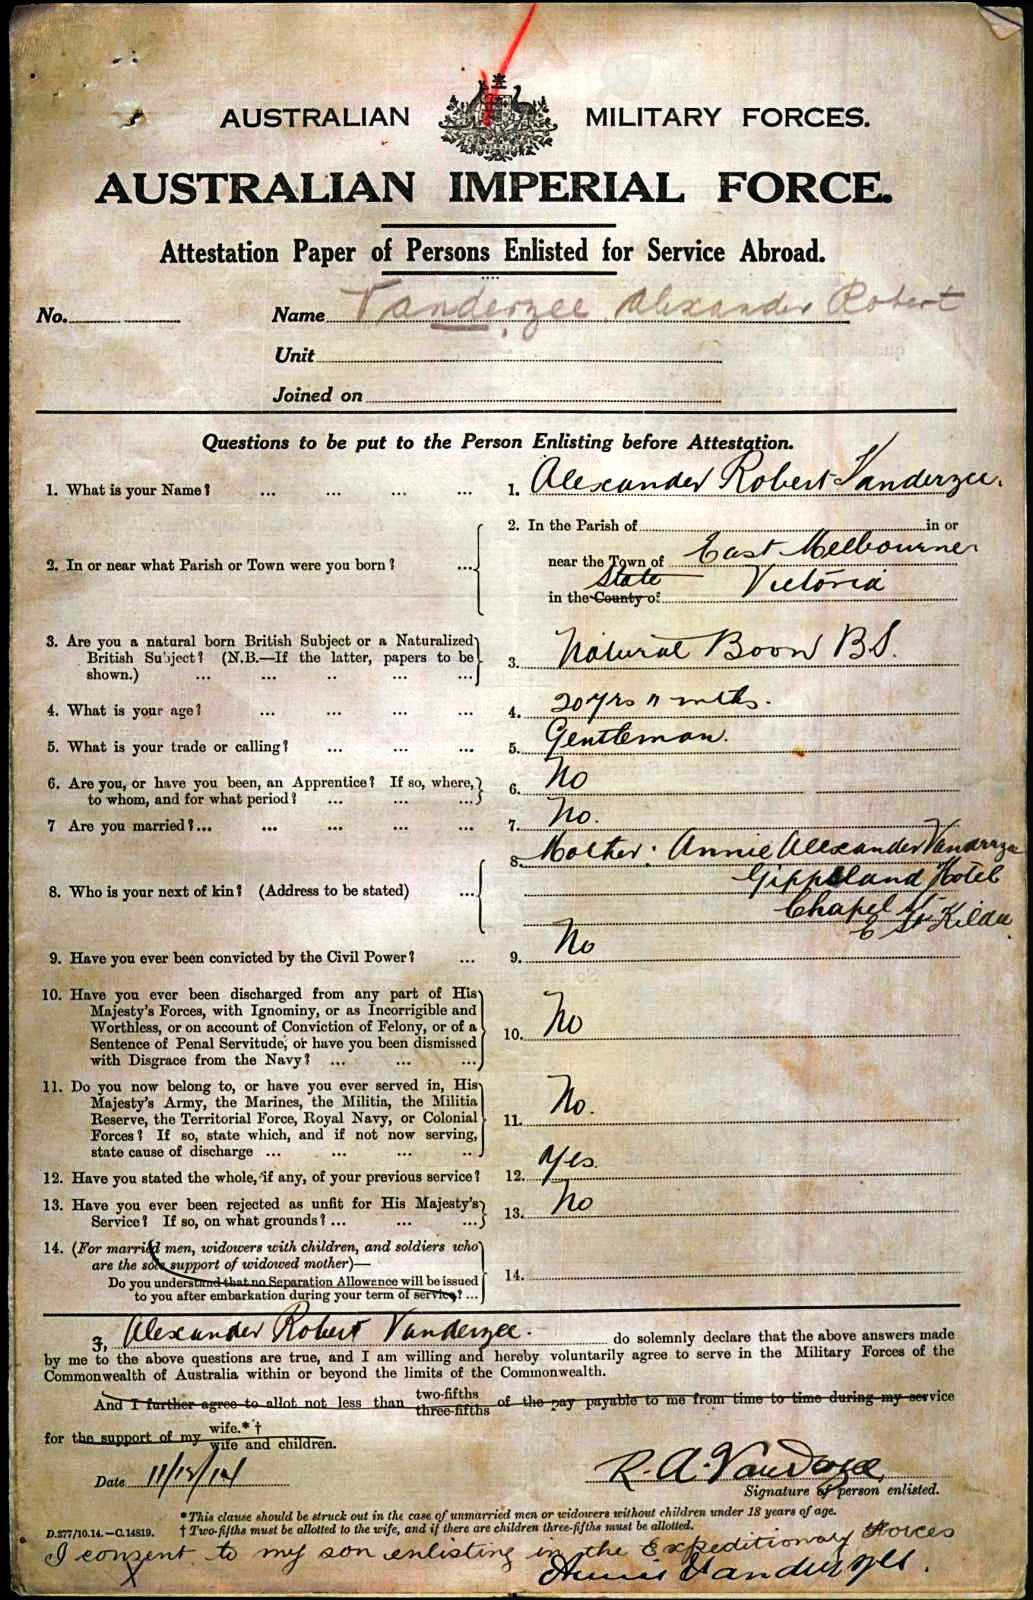 AUSTRALIAN MILITARY FORCES.
AUSTRALIAN IMPERIAL FORCE.
Attestation Paper of Persons Enlisted for Service Abroad.
No. Name Vanderzee Alexander Robert
Unit
Joined on
Questions to be put to the Person Enlisting before Attestation.
1. What is your Name? ... ... ... ... 1. Alexander Robert Vanderzee.
2. In or near what Parish or Town were you born? ... 2. In the Parish of in or
near the Town of East Melbourne
State
in the County of Victoria
3. Are you a natural born British Subject or a Naturalized
British Subject? (N.B.—If the latter, papers to be
shown.) ... ... .. ... ... 3. Natural Boon B.S.
4. What is your age? ... ... ... ... 4. 20 yrs 11 mths.
5. What is your trade or calling? ... ... ... 5. Gentleman.
6. Are you, or have you been, an Apprentice? If so, where,
to whom, and for what period? ... ... ... 6. No
7 Are you married?... ... ... ... ... 7. No.
8. Who is your next of kin? (Address to be stated) ... 8. Mother: Annie Alexander Vanderzee
Gippsland Hotel
Chapel St
E St Kilda.
9. Have you ever been convicted by the Civil Power? ... 9. No
10. Have you ever been discharged from any part of His
Majesty's Forces, with Ignominy, or as Incorrigible and
Worthless, or on account of Conviction of Felony, or of a
Sentence of Penal Servitude, or have you been dismissed
with Disgrace from the Navy? ... ... ... 10. No
11. Do you now belong to, or have you ever served in, His
Majesty's Army, the Marines, the Militia, the Militia
Reserve, the Territorial Force, Royal Navy, or Colonial
Forces? If so, state which, and if not now serving,
state cause of discharge ... ... ... .. 11. No.
12. Have you stated the whole, if any, of your previous service? 12. Yes.
13. Have you ever been rejected as unfit for His Majesty's
Service? If so, on what grounds? ... ... ... 13. No
14. (For married men, widowers with children, and soldiers who
are the sole support of widowed mother)—
Do you understand that no Separation Allowance will be issued
to you after embarkation during your term of service? ... 14.
I, Alexander Robert Vanderzee. do solemnly declare that the above answers made
by me to the above questions are true, and I am willing and hereby voluntarily agree to serve in the Military Forces of the
Commonwealth of Australia within or beyond the limits of the Commonwealth.
And I further agree to allot not less than two-fifths three-fifths of the pay payable to me from time to time during my service
for the support of my wife.*† wife and children.
Date 11/12/14 R. A. Vanderzee
Signature of person enlisted.
* This clause should be struck out in the case of unmarried men or widowers without children under 18 years of age.
D.277/10.14.—C.14819. † Two-fifths must be allotted to the wife, and if there are children three-fifths must be allotted.
I consent to my son enlisting in the Expeditionary Forces
X Annie Vanderzee.